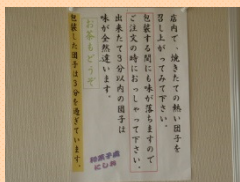 店内で、焼きたての熱い団子を
召し上がってみて下さい。
包装する間にも味が落ちますので
ご注文の時におっしゃって下さい。
出来たて3分以内の団子は
味が全然違います。
お茶もどうぞ
包装した団子は3分を過ぎています。
和菓子處
にしみ